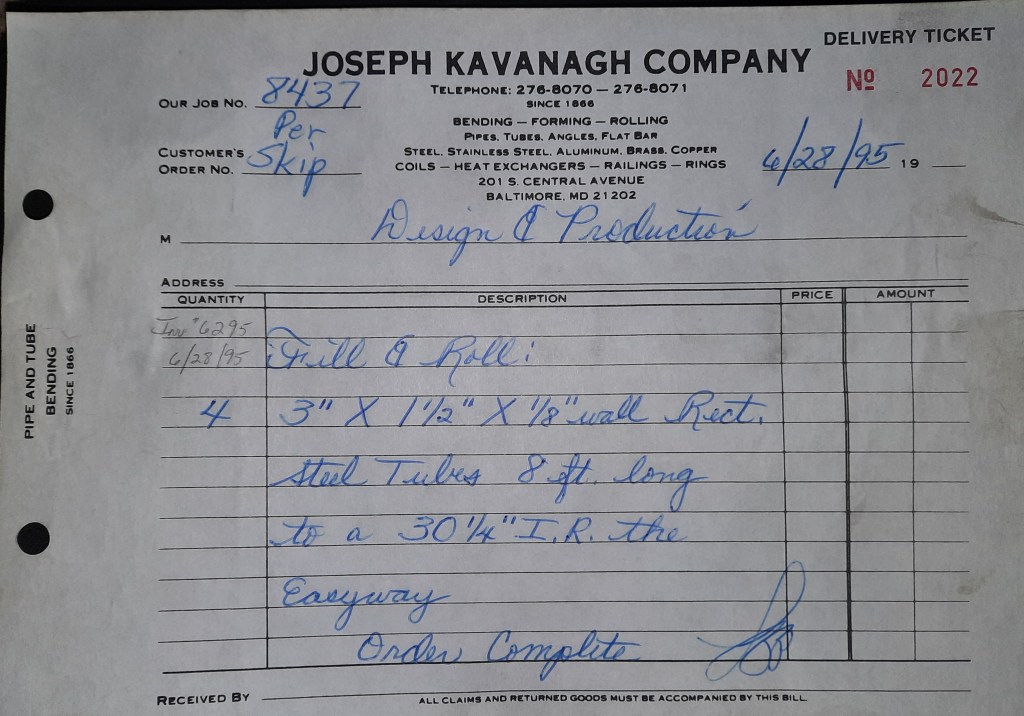 DELIVERY TICKET
JOSEPH KAVANAGH COMPANY
Nº 2022
TELEPHONE: 276-8070 — 276-8071
SINCE 1866
OUR JOB NO. 8437
BENDING — FORMING — ROLLING
PIPES, TUBES, ANGLES, FLAT BAR
STEEL, STAINLESS STEEL, ALUMINUM, BRASS, COPPER
COILS — HEAT EXCHANGERS — RAILINGS — RINGS
201 S. CENTRAL AVENUE
BALTIMORE, MD 21202
Per
CUSTOMER'S
ORDER NO. Skip
6/28/95 19
M Design & Production
ADDRESS
QUANTITY DESCRIPTION PRICE AMOUNT
Inv # 6295
6/28/95 Fill & Roll:
4 3" X 1 1/2" X 1/8" wall Rect.
Steel Tubes 8 ft. long
to a 30 1/4" I.R. the
Easyway
Order Complete
RECEIVED BY
ALL CLAIMS AND RETURNED GOODS MUST BE ACCOMPANIED BY THIS BILL
PIPE AND TUBE
BENDING
SINCE 1866